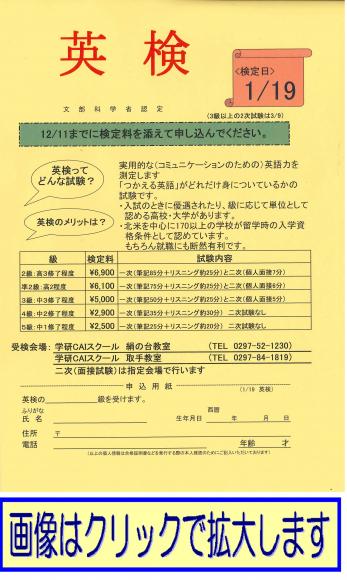 英 検
<検定日>
1/19
文 部 科 学 省 認 定
(3級以上の2次試験は3/9)
12/11までに検定料を添えて申し込んでください。
英検って
どんな試験?
実用的な(コミュニケーションのための)英語力を
測定します
「つかえる英語」がどれだけ身についているかの
試験です。
英検のメリットは?
・入試のときに優遇されたり、級に応じて単位として
認める高校・大学があります。
・北米を中心に170以上の学校が留学時の入学資
格条件として認めています。
もちろん就職にも断然有利です。
級 検定料 試験内容
2級:高3修了程度 ¥6,900 一次(筆記85分+リスニング約25分)と二次(個人面接7分)
準2級:高2程度 ¥6,100 一次(筆記75分+リスニング約25分)と二次(個人面接6分)
3級:中3修了程度 ¥5,000 一次(筆記50分+リスニング約25分)と二次(個人面接5分)
4級:中2修了程度 ¥2,900 一次(筆記35分+リスニング約30分) 二次試験なし
5級:中1修了程度 ¥2,500 一次(筆記25分+リスニング約20分) 二次試験なし
受検会場: 学研CAIスクール 絹の台教室 (TEL 0297-52-1230)
学研CAIスクール 取手教室 (TEL 0297-84-1819)
二次(面接試験)は指定会場で行います
申 込 用 紙
(1/19 英検)
英検の 級を受けます。
ふりがな
氏 名 生年月日 西暦 年 月 日
住所 〒
電話 年齢 才
(以上の個人情報は合格証明書などを発行する際の本人確認のためにご記入いただいております)
画像はクリックで拡大します